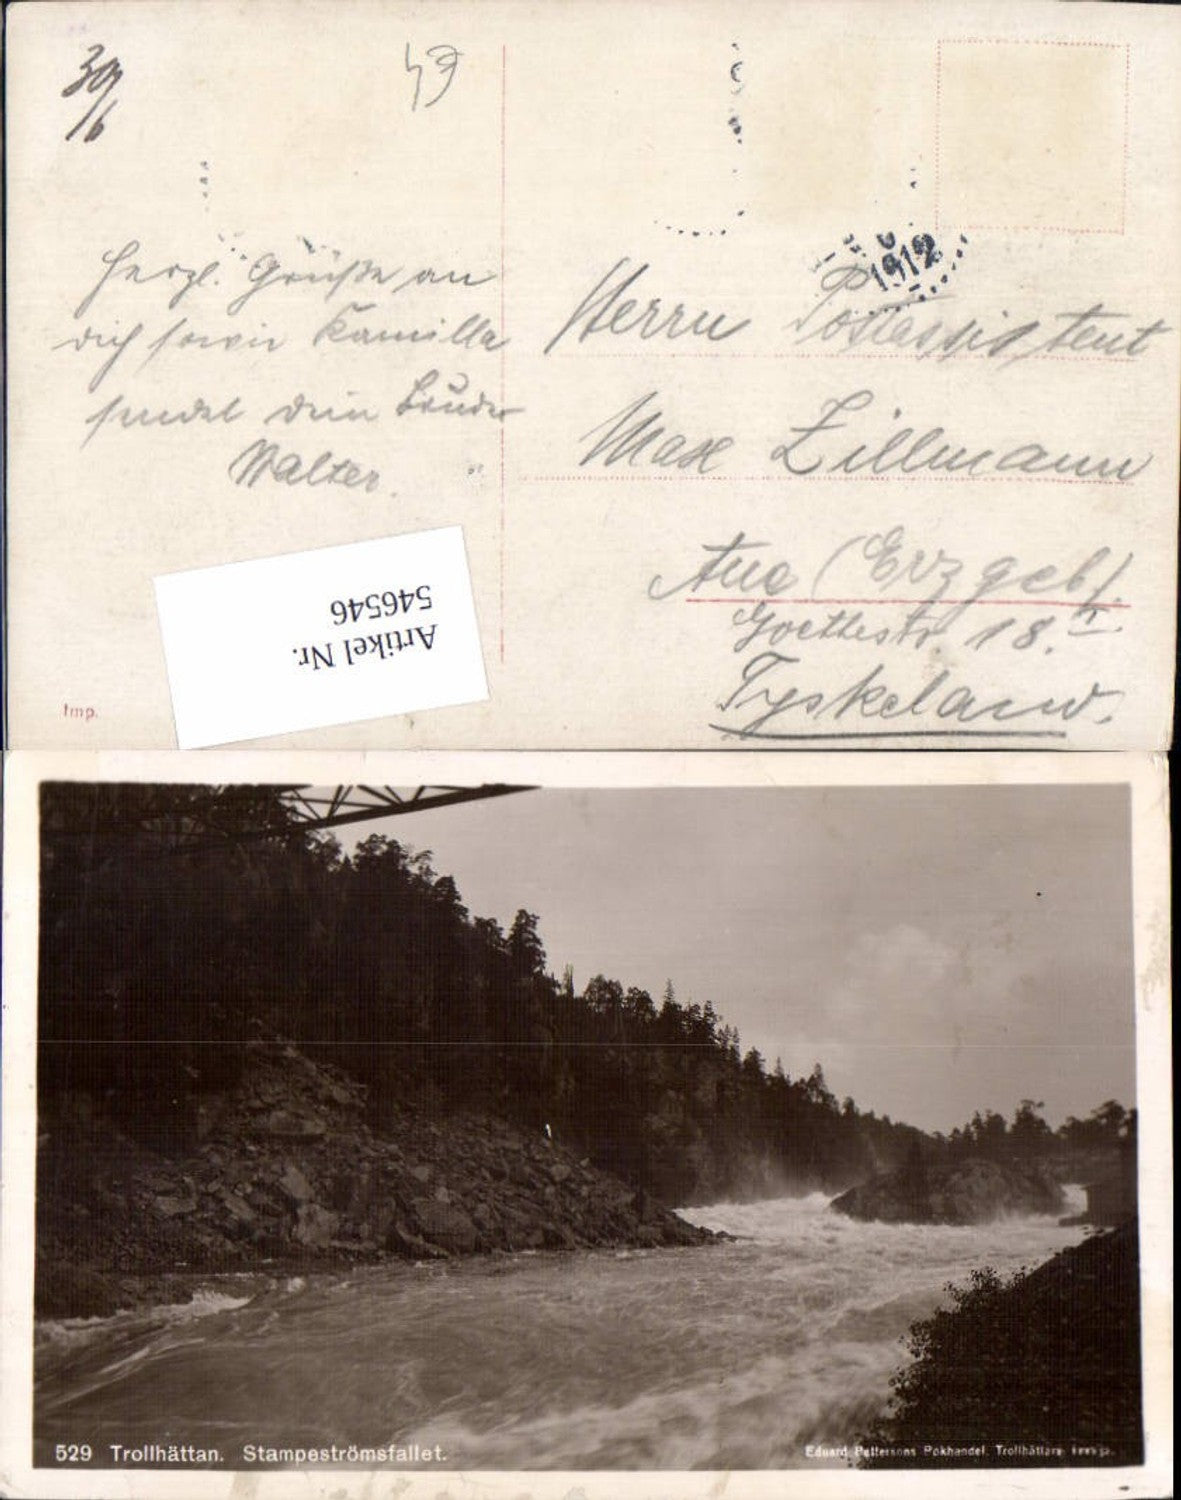 30/6
43
1912
Herzl. Grüße an
dich sowie Kamilla
sendet dein Bruder
Walter.
Herrn Postassistent
Max Zillmann
Aue (Erzgeb).
Goethestr. 18. I.
Tyskeland.
Artikel Nr.
546546
Imp.
529 Trollhättan. Stampeströmsfallet.
Eduard Pettersons Pokhandel. Trollhättan